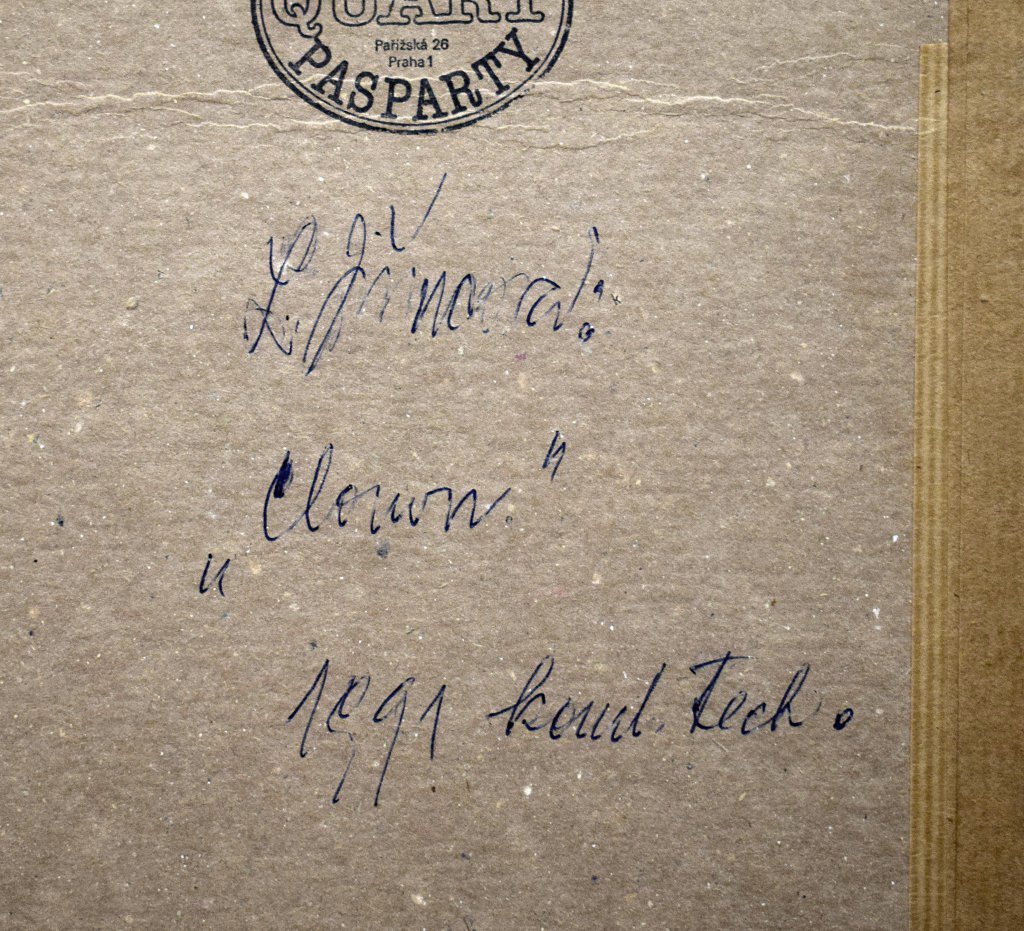 QUART
Pařížská 26
Praha 1
PASPARTY
L. Jiřincová
„Clown"
1991 komb. tech.